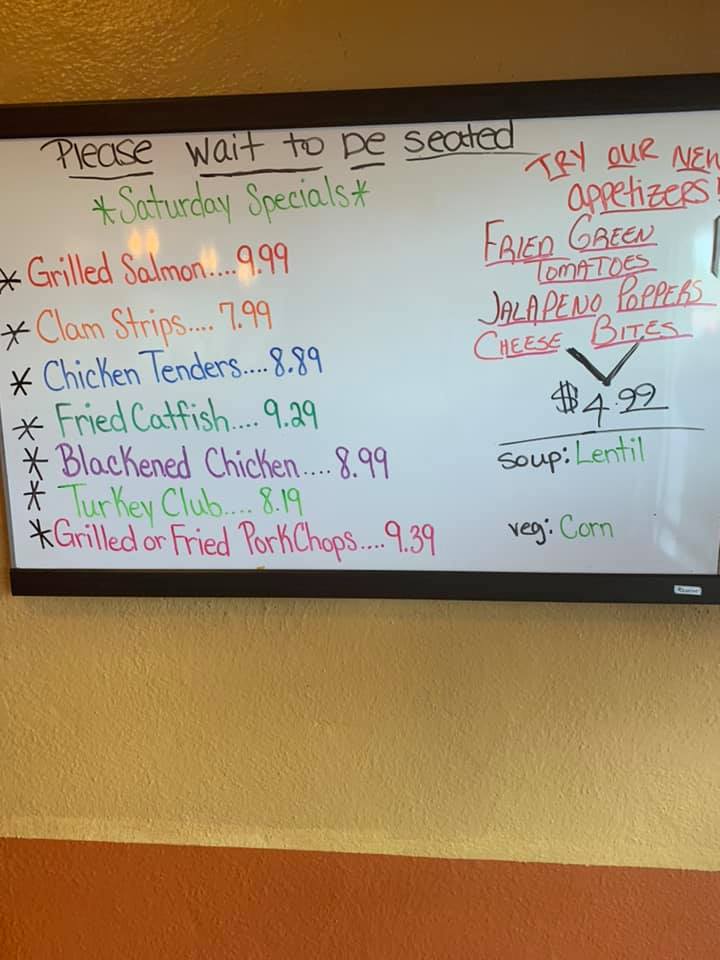 Please wait to be seated
*Saturday Specials*
* Grilled Salmon....9.99
* Clam Strips.... 7.99
* Chicken Tenders....8.89
* Fried Catfish.... 9.29
* Blackened Chicken....8.99
* Turkey Club.... 8.19
* Grilled or Fried PorkChops....9.39
TRY OUR NEW
appetizers!
FRIED GREEN
TOMATOES
JALAPENO POPPERS
CHEESE BITES
$4.99
soup: Lentil
veg: Corn